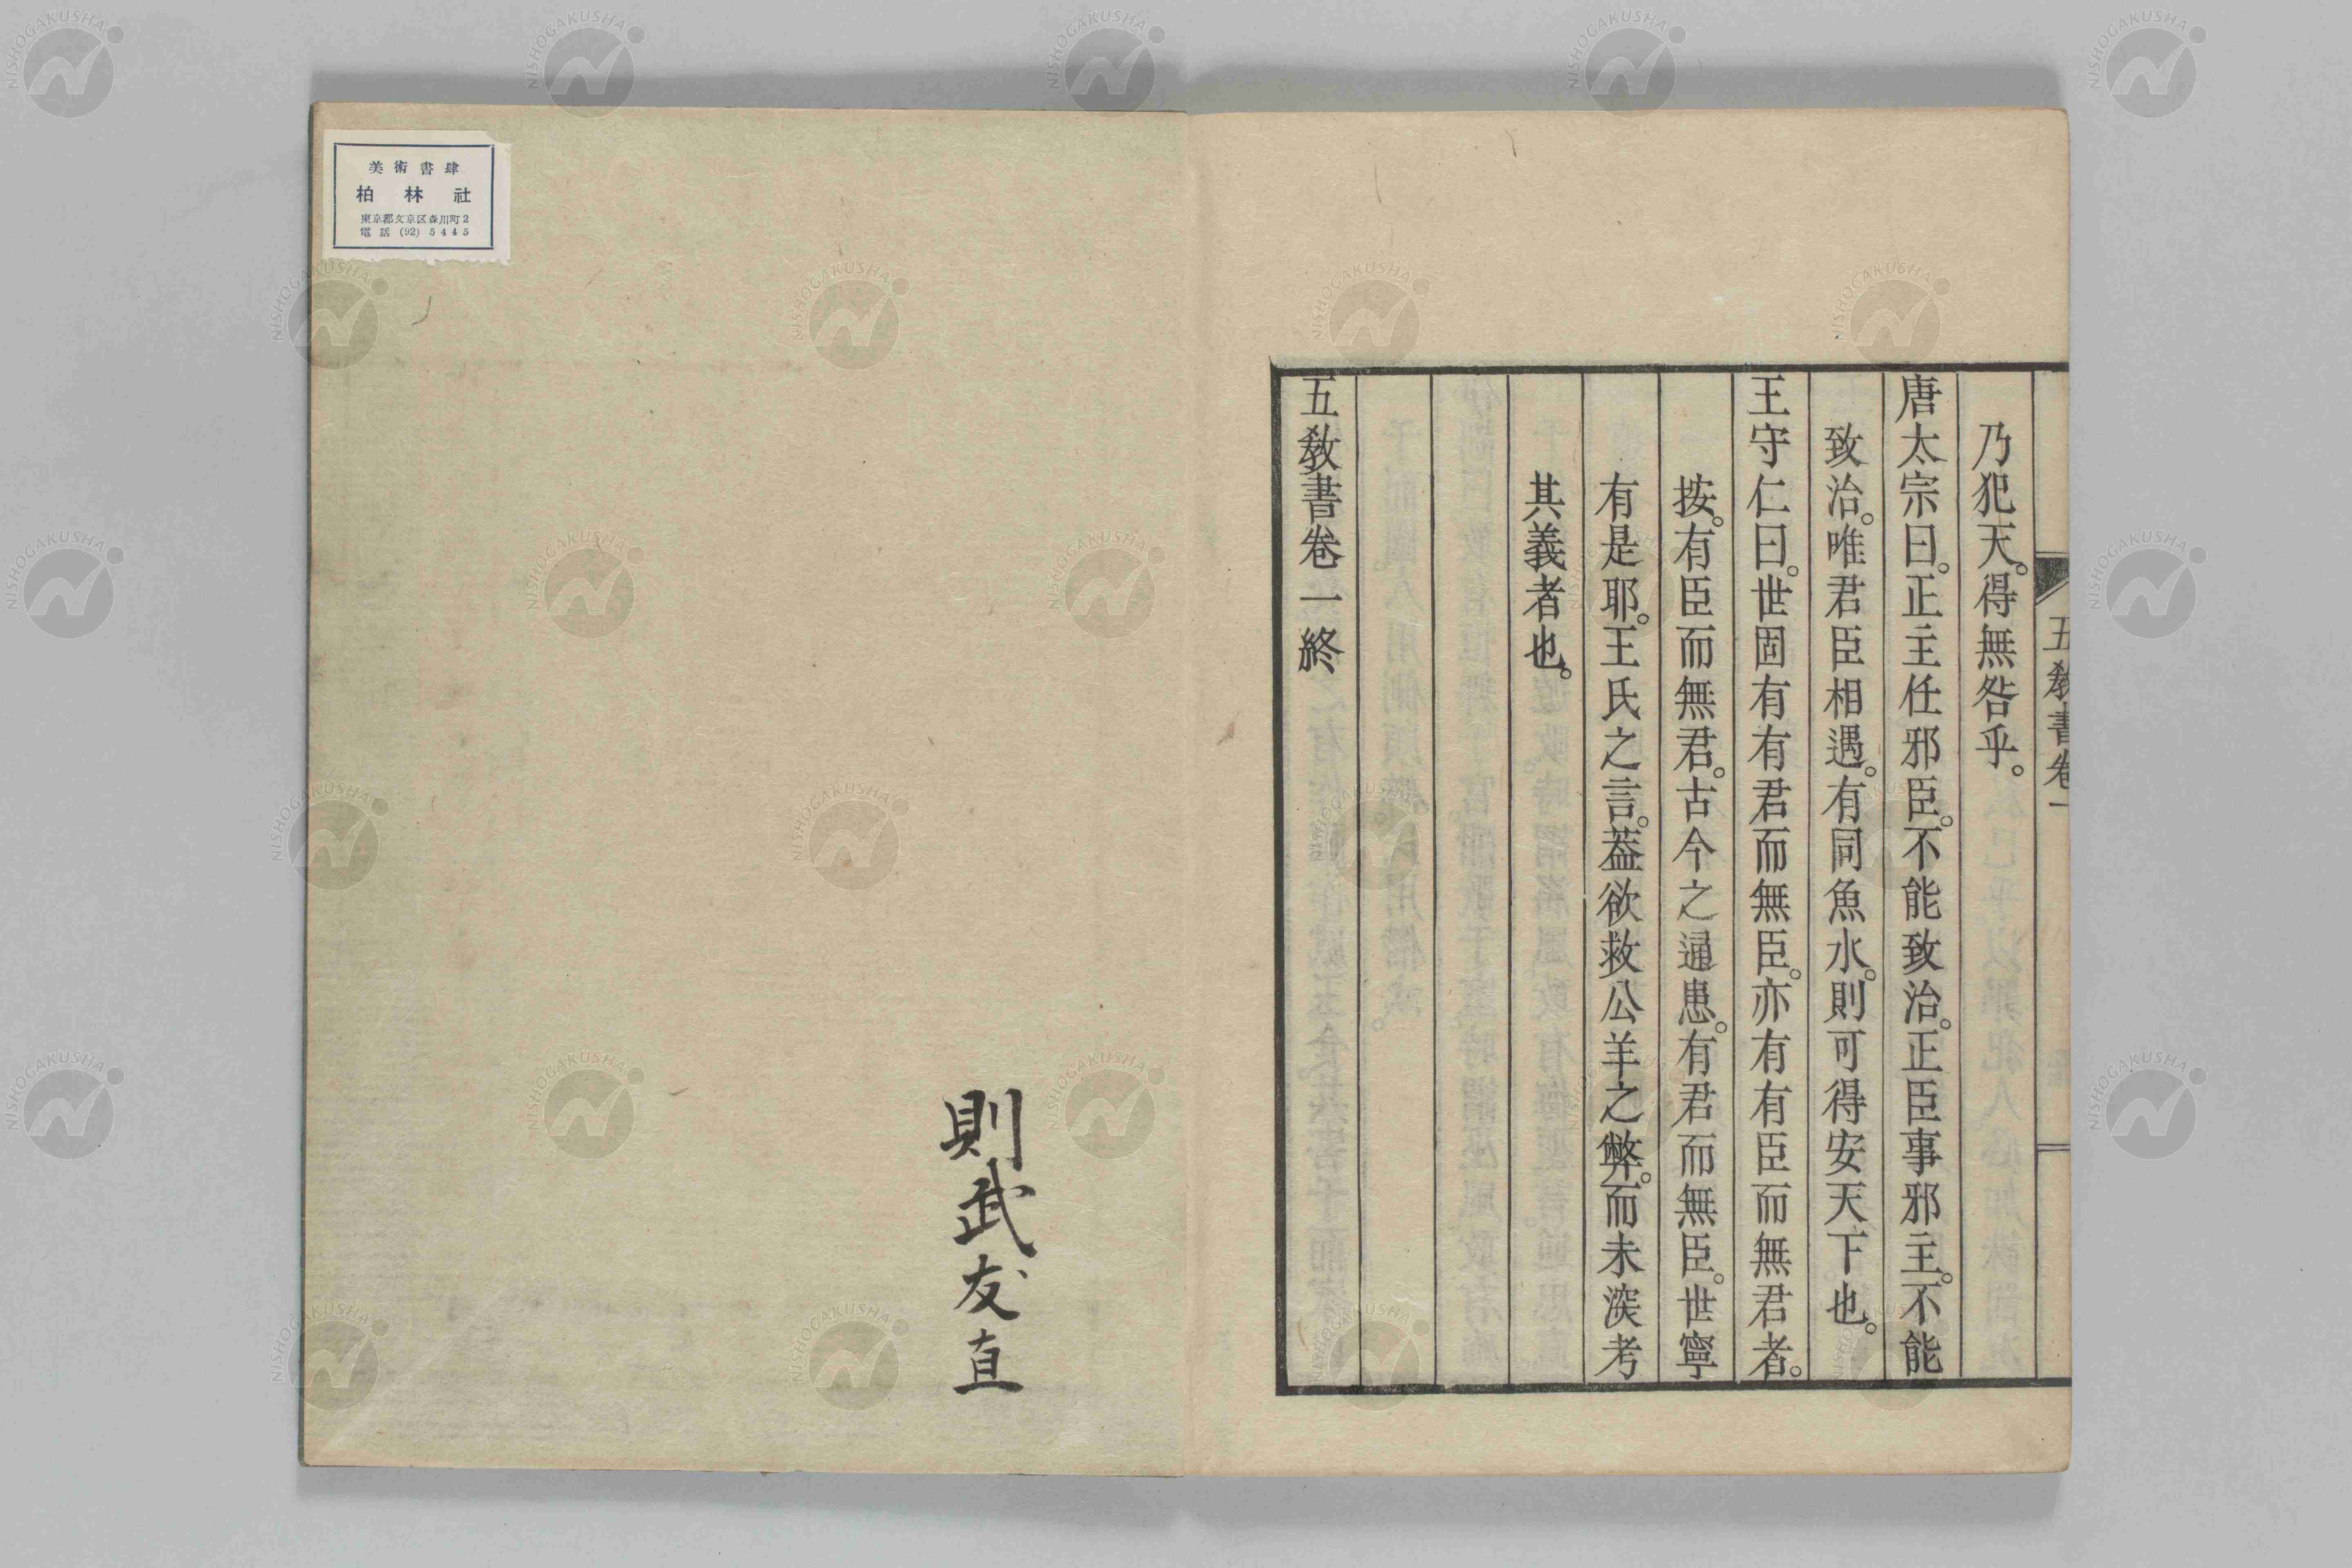 五教書卷一
乃犯天。得無咎乎。
唐太宗曰。正主任邪臣。不能致治。正臣事邪主。不能
致治。唯君臣相遇。有同魚水。則可得安天下也。
王守仁曰。世固有有君而無臣。亦有有臣而無君者。
按。有臣而無君。古今之通患。有君而無臣。世寧
有是耶。王氏之言。蓋欲救公羊之弊。而未深考
其義者也。
五教書卷一終
則武友直
美術書肆
柏林社
東京都文京区森川町2
電話 (92) 5445
NISHOGAKUSHA